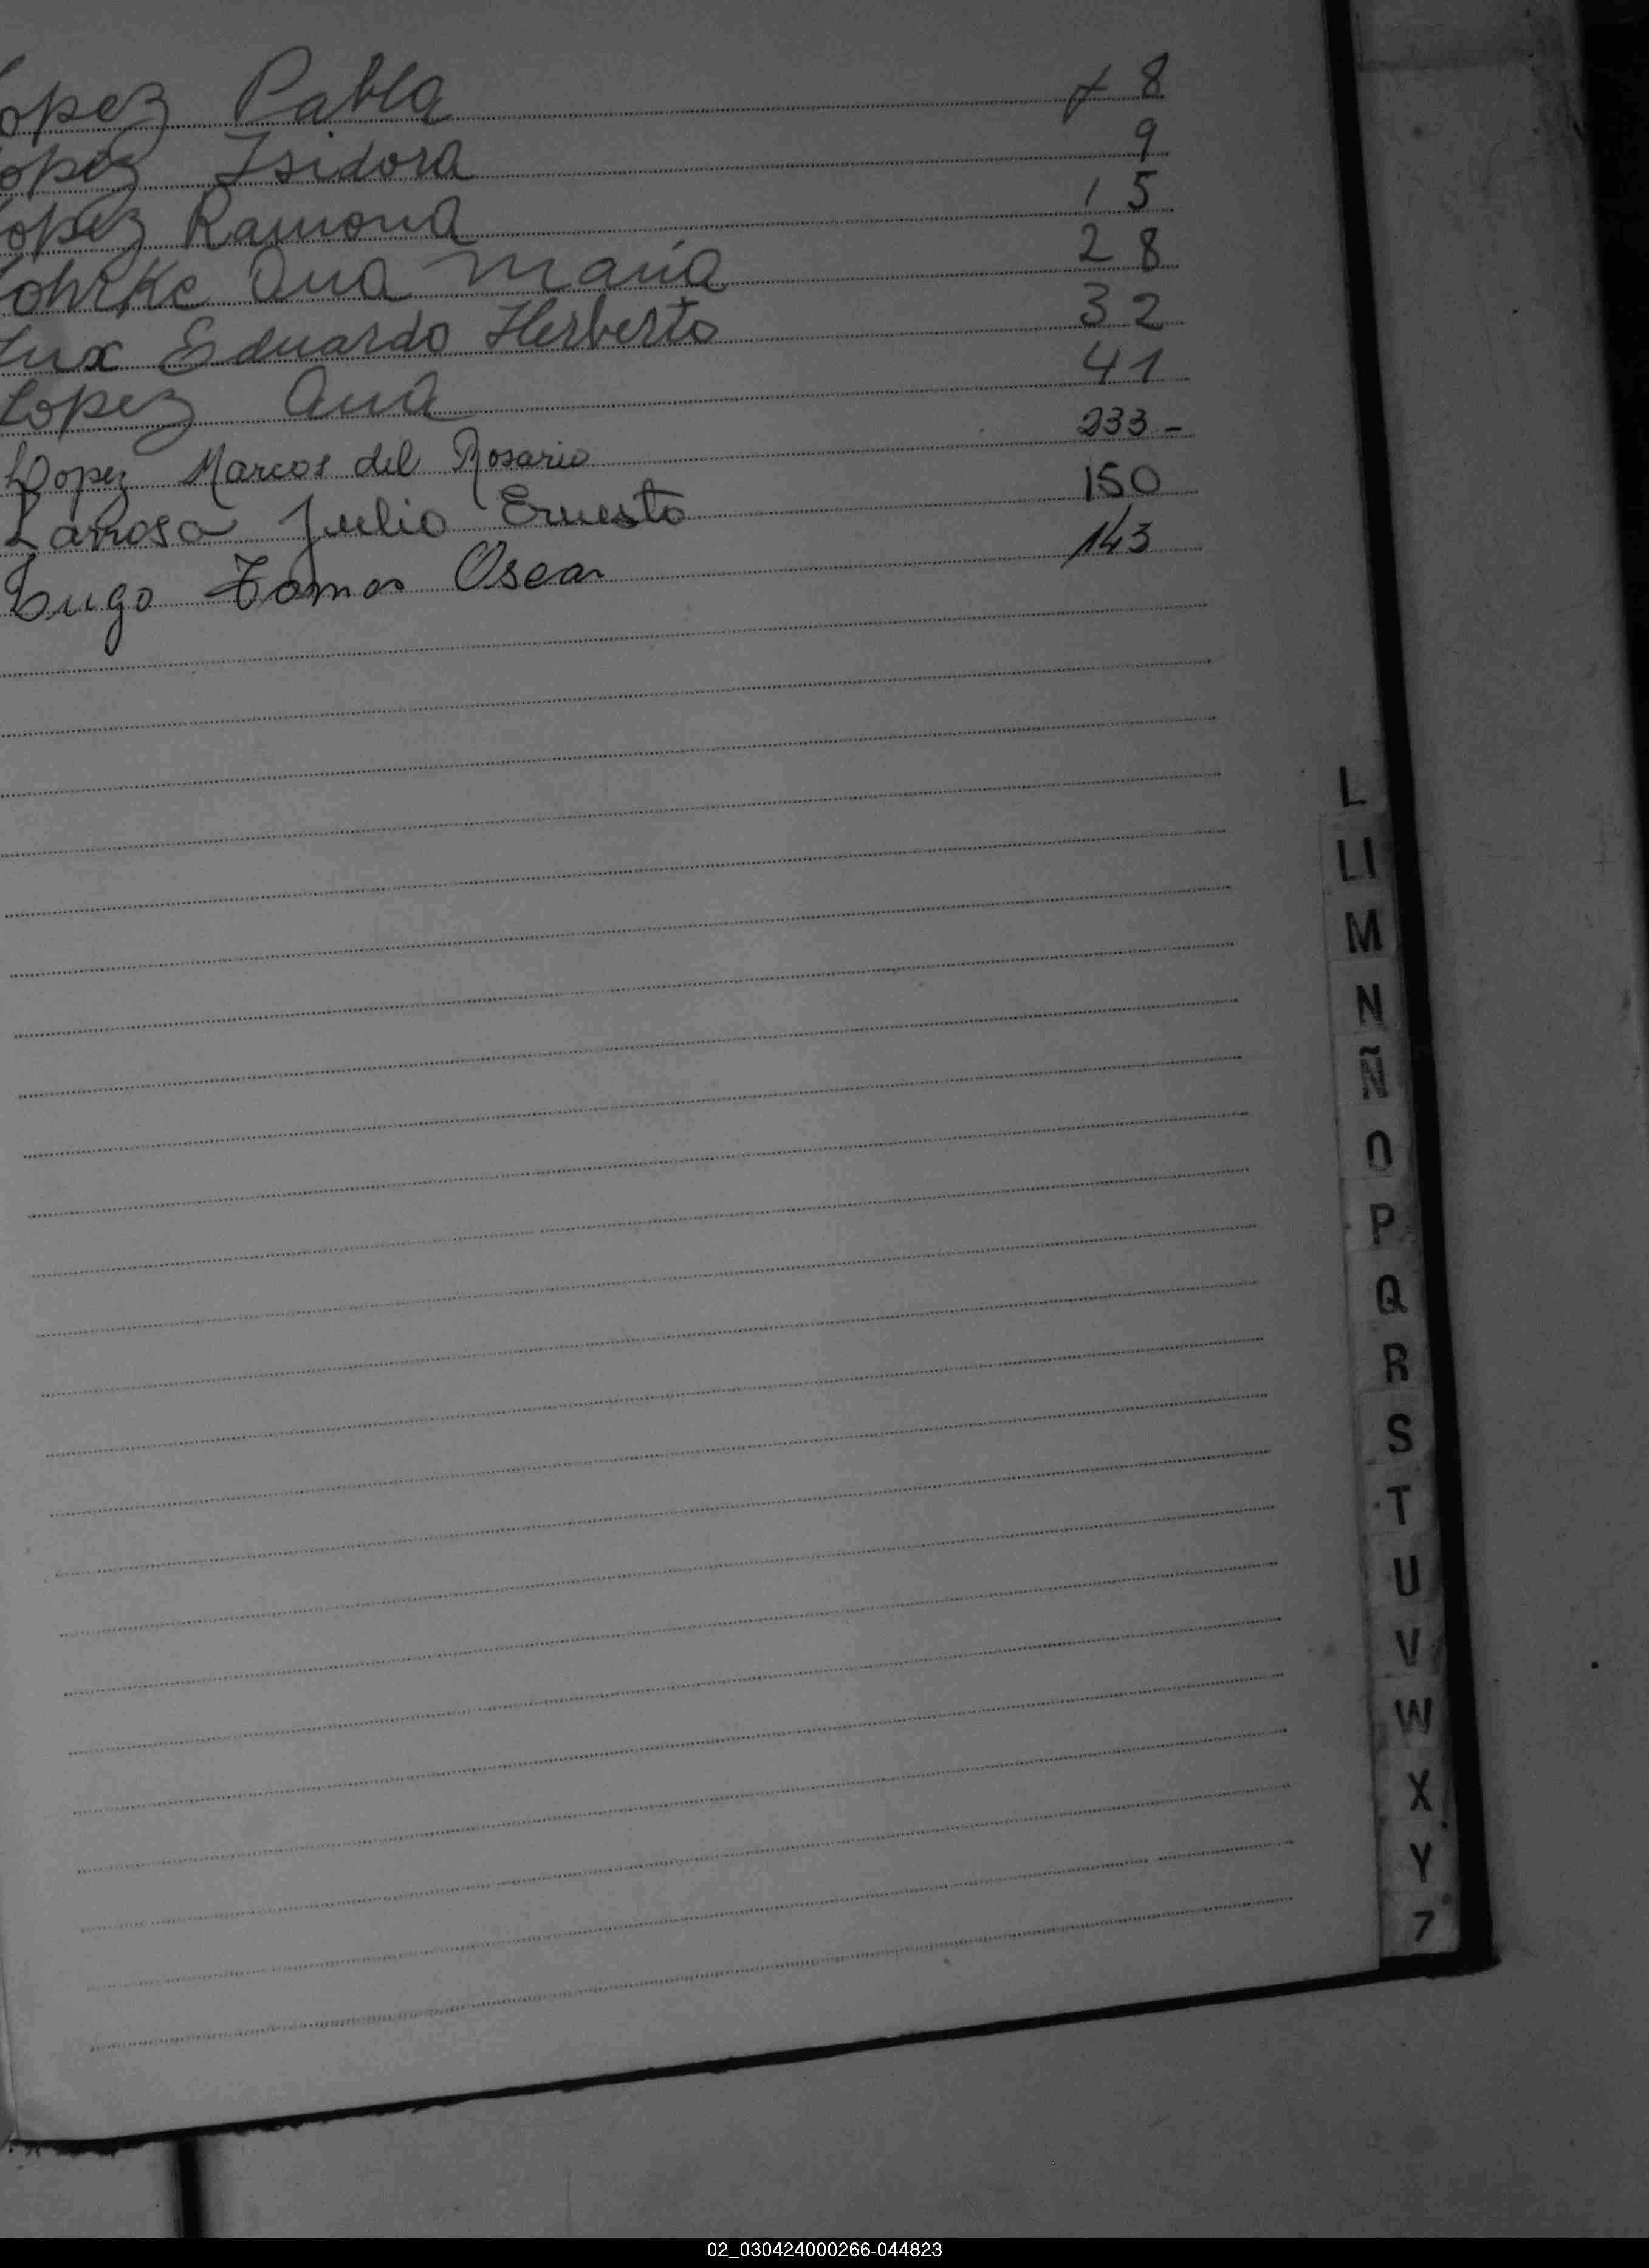 Lopez Pabla + 8
Lopez Isidora 9
Lopez Ramona 15
Lohrke Ana Maria 28
Lux Eduardo Herberto 32
Lopez Ana 41
Lopez Marcos del Rosario 233-
Larrosa Julio Ernesto 150
Lugo Tomas Oscar 143
L
Ll
M
N
Ñ
O
P
Q
R
S
T
U
V
W
X
Y
Z
02_030424000266-044823